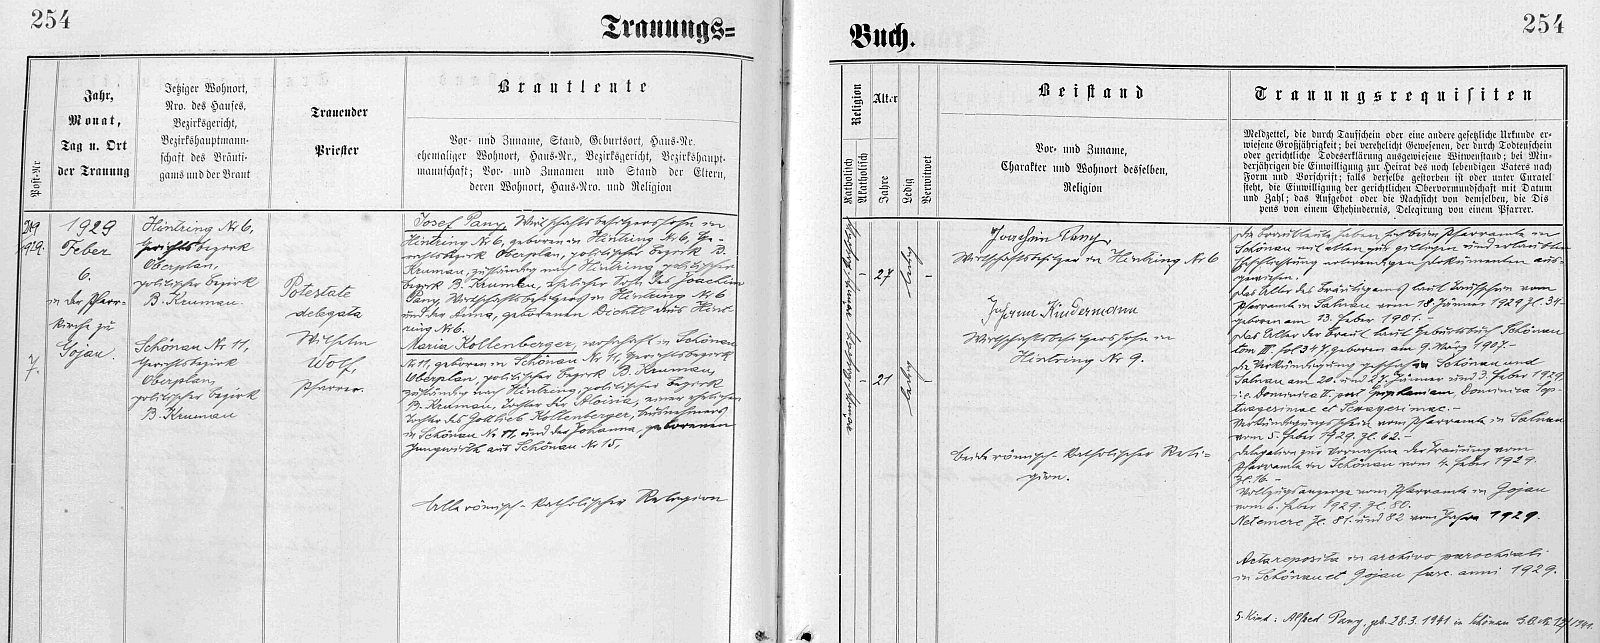 254
Trauungs=
Buch.
254
Post-Nr
Jahr,
Monat,
Tag u. Ort
der Trauung
Jetziger Wohnort,
Nro. des Hauses,
Bezirksgericht,
Bezirkshauptmann-
schaft des Bräuti-
gams und der Braut
Trauender
Priester
Brautleute
Vor- und Zuname, Stand, Geburtsort, Haus-Nr.
ehemaliger Wohnort, Haus-Nr., Bezirksgericht, Bezirkshaupt-
mannschaft; Vor- und Zunamen und Stand der Eltern,
deren Wohnort, Haus-Nro. und Religion
Religion
Katholisch
Akatholisch
Alter
Jahre
Ledig
Verwitwet
Beistand
Vor- und Zuname,
Charakter und Wohnort desselben,
Religion
Trauungsrequisiten
Meldzettel, die durch Taufschein oder eine andere gesetzliche Urkunde er-
wiesene Großjährigkeit; bei verehelicht Gewesenen, der durch Todtenschein
oder gerichtliche Todeserklärung ausgewiesene Witwenstand; bei Min-
derjährigen die Einwilligung zur Heirat des noch lebendigen Vaters nach
Form und Vorschrift; falls derselbe gestorben ist oder unter Curatel
steht, die Einwilligung der gerichtlichen Obervormundschaft mit Datum
und Zahl; das Aufgebot oder die Nachsicht von demselben, die Dis
pens von einem Ehehindernis, Delegirung von einem Pfarrer.
1929
Feber
6.
in der Pfarr-
kirche zu
Gojau.
7.
Hintring Nr 6,
Gerichtsbezirk
Oberplan,
politischer bezirk
B. Krumau.
Schönau Nr 11,
Gerichtsbezirk
Oberplan,
politischer bezirk
B. Krumau
Potestate
delegata
Wilhelm
Wolf,
Pfarrer.
Josef Pany, Wirtschaftsbesitzerssohn in
Hintring Nr 6, geboren in Hintring Nr 6, Ge-
richtsbezirk Oberplan, politischer bezirk B.
Krumau, zuständig nach Hintring, politischer
bezirk B. Krumau, ehelicher Sohn des Joachim
Pany, Wirtschaftsbesitzers in Hintring Nr 6
und der Anna, geborenen Dichtl aus Hint-
ring Nr 6.
Maria Kollenberger, in Schönau
Nr 11, geboren in Schönau Nr 11, Gerichtsbezirk
Oberplan, politischer bezirk B. Krumau,
zuständig nach Hintring, politischer bezirk
B. Krumau, Tochter der Aloisia, einer ehelichen
Tochter des Gottlieb Kollenberger,
in Schönau Nr 11, und der Johanna, geborenen
Jungwirth aus Schönau Nr 15.
Alle römisch-katholischer Religion
27 ledig
21 ledig
Joachim Pany,
Wirtschaftsbesitzer in Hintring Nr 6
Johann Kindermann
Wirtschaftsbesitzerssohn in
Hintring Nr 9.
beide römisch-katholischer Reli-
gion.
Die Brautleute haben sich beim Pfarramte in
Schönau mit allen zur giltigen und erlaubten
Eheschließung notwendigen Dokumenten aus-
gewiesen.
Das Alter des Bräutigams laut Taufschein vom
Pfarramte in Salnau vom 18. Jänner 1929 Zl. 34-
geboren am 13. Feber 1901.
Das Alter der Braut laut Geburtsbuch Schönau
tom III. fol 347, geboren am 9. März 1907.-
Die Verkündigung geschah in Schönau und
Salnau am 20. und 27. Jänner und 3. Feber 1929.
i.e. Dominica II. post Epiphaniam, Dominica Sep-
tuagesimae et Sexagesimae.-
Verkündigungsschein vom Pfarramte in Salnau
vom 5. Feber 1929. Zl. 62.-
Delegation zur Vornahme der Trauung vom
Pfarramte in Schönau vom 4. Feber 1929.
Zl. 16.-
Vollzugsanzeige vom Pfarramte in Gojau
vom 6. Feber 1929. Zl. 80.
Netemere Zl. 81. und 82 vom Jahre 1929.
Acta reposita in archivo parochiali
in Schönau et Gojau fasc. anni 1929.
5. Kind: Alfred Pany, geb. 28.3.1941 in Schönau